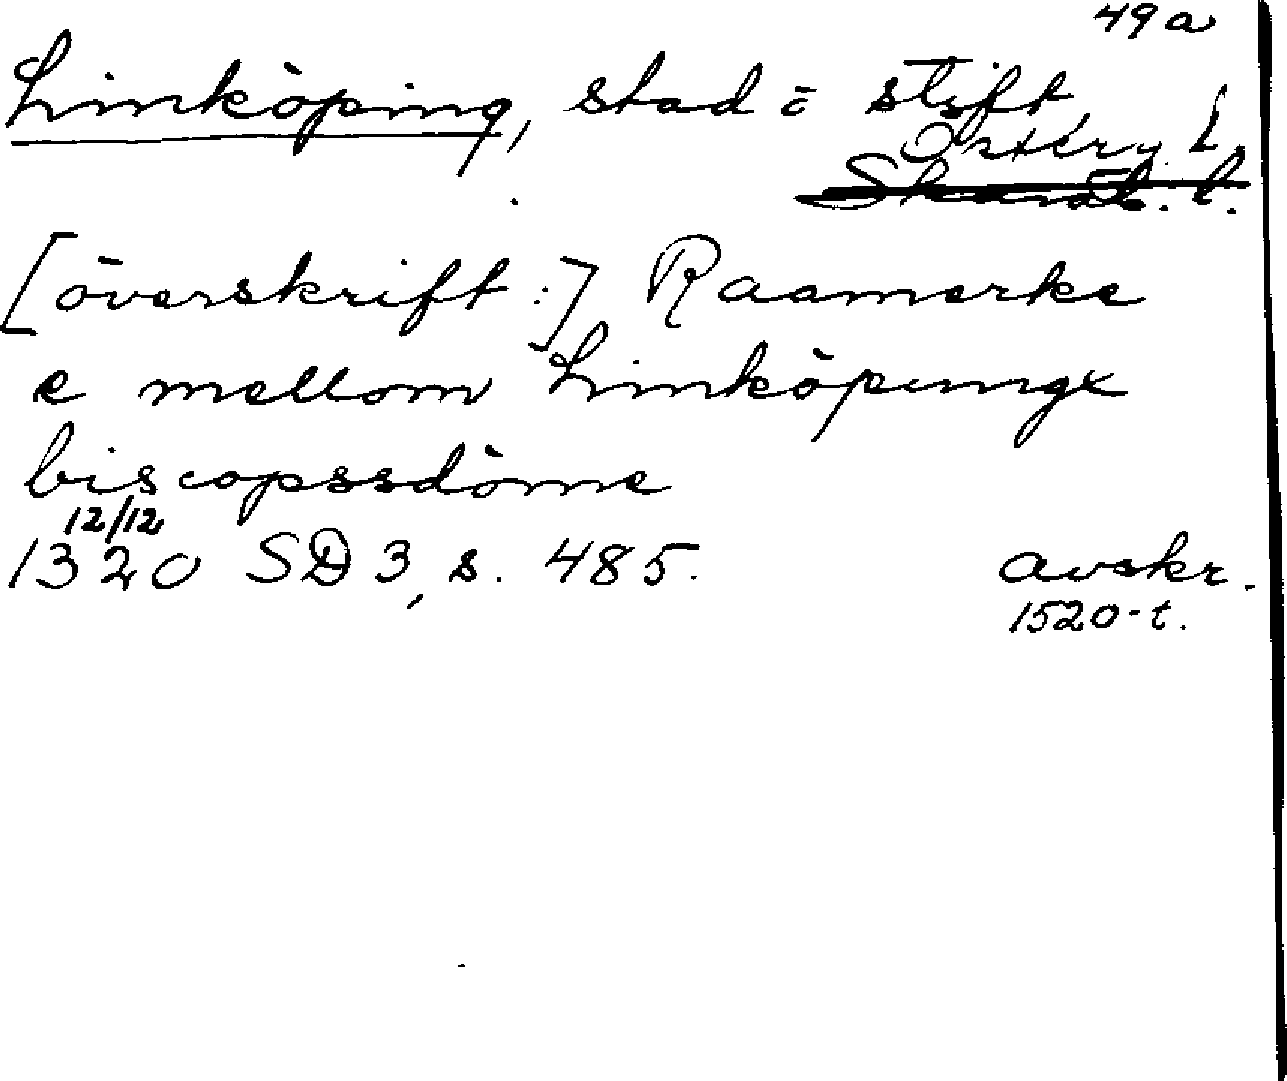 49 a
Linköping, stad o stift
Österg. l.
Skarab. l.
[överskrift:] Raamerke
e mellom Linköpungx
biscopssdöme
12/12
1320 SD 3, s. 485. avskr.
1520-t.